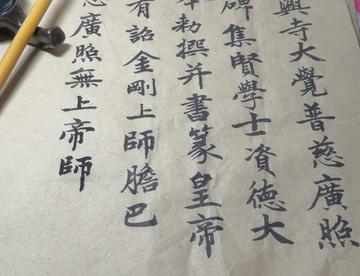 興寺大覺普慈廣照
碑集賢學士資德大
奉勅撰并書篆皇帝
有詔金剛上師膽巴
慈廣照無上帝師